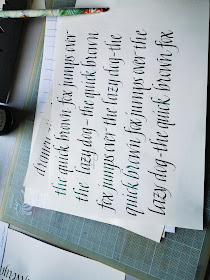 the quick brown fox jumps over
the lazy dog - the quick brown
fox jumps over the lazy dog - the
quick brown fox jumps over the
lazy dog - the quick brown fox